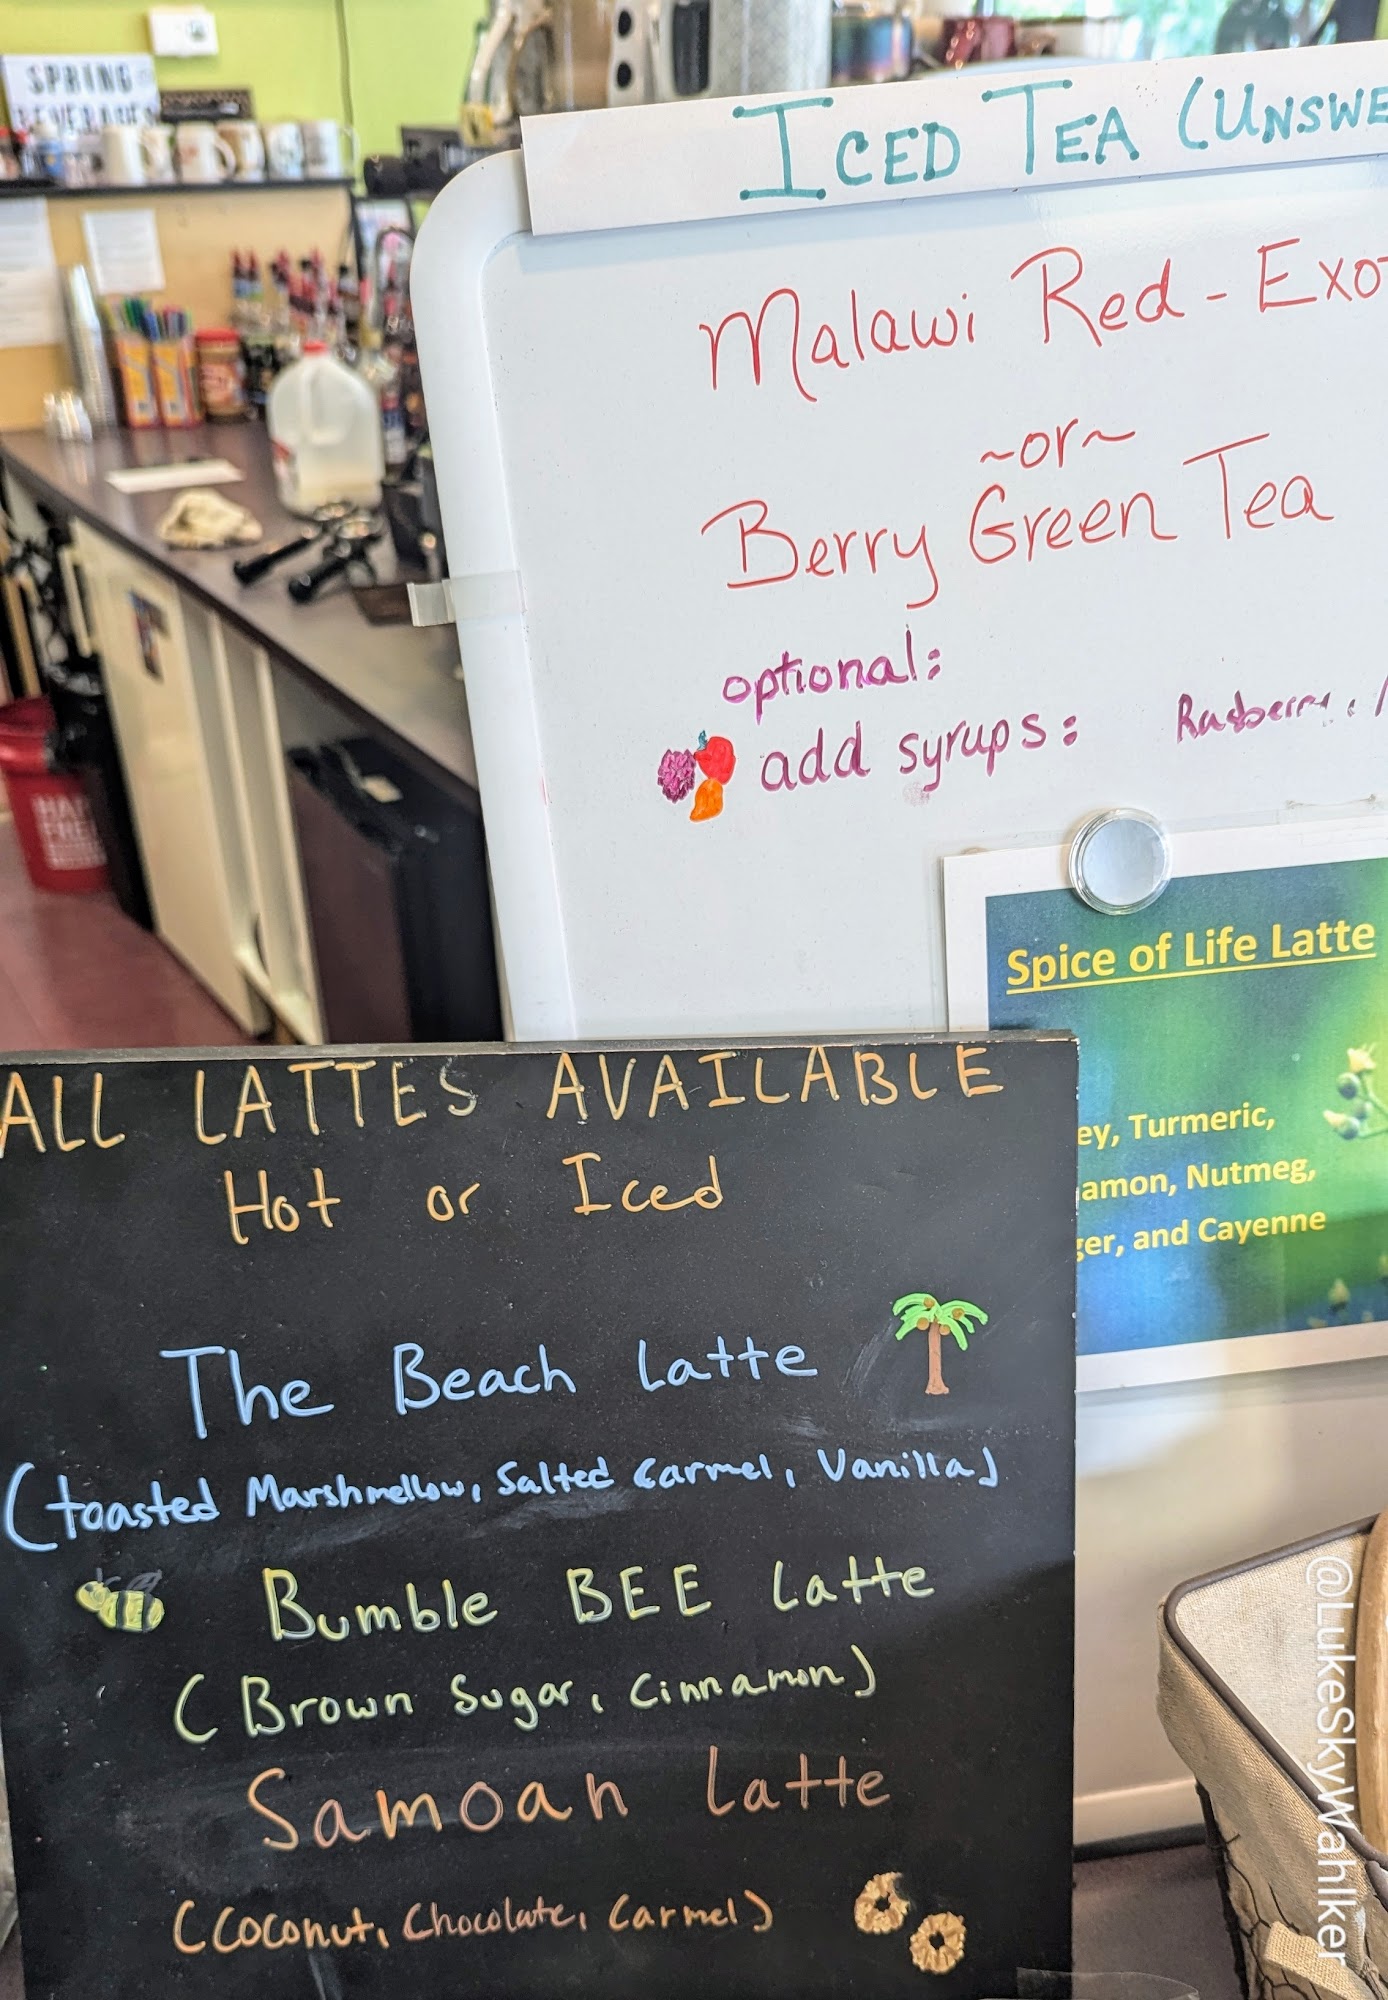 SPRING
BEVERAGES
ICED TEA (UNSWE
Malawi Red - Exo
~or~
Berry Green Tea
optional:
add syrups: Rasberry,
Spice of Life Latte
ey, Turmeric,
amon, Nutmeg,
ger, and Cayenne
ALL LATTES AVAILABLE
Hot or Iced
The Beach Latte
(toasted Marshmellow, Salted Carmel, Vanilla)
Bumble BEE Latte
(Brown Sugar, Cinnamon)
Samoan Latte
(Coconut, Chocolate, Carmel)
@LukeSkyWahlker